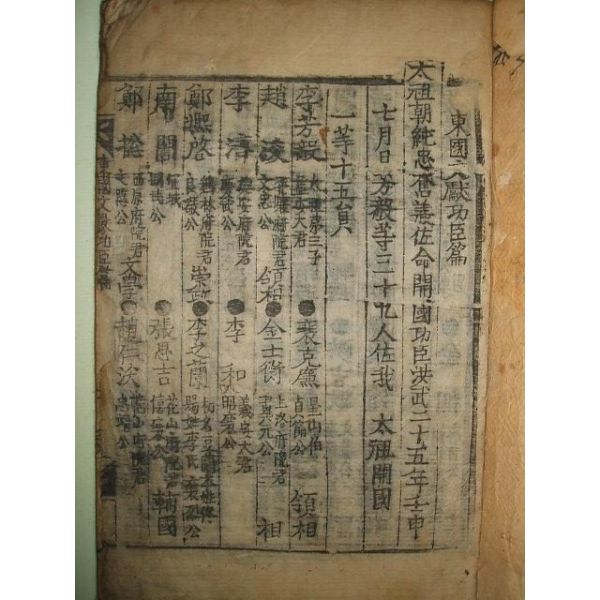 東國文獻功臣篇
太祖朝純忠奮義佐命開國功臣洪武二十五年壬申
七月日芳毅等三十九人佐我 太祖開國
一等十五員
李芳毅 太祖第三子 益安大君 ●裵克廉 星山伯 貞節公 領相
趙浚 平壤府院君 文忠公 領相●金士衡 上洛府院君 翼元公 相
李濟 興安府院君 景武公 ●李和 義安大君 昭襄公
鄭熙啓 鷄林府院君 良景公 崇政●李之蘭 襄烈公
南誾 宜城君 剛武公 ●張思吉 花山府院君 僖襄公 輔國
鄭摠 西原府院君 文愍公 文學●趙仁沃 漢山府院君 忠靖公